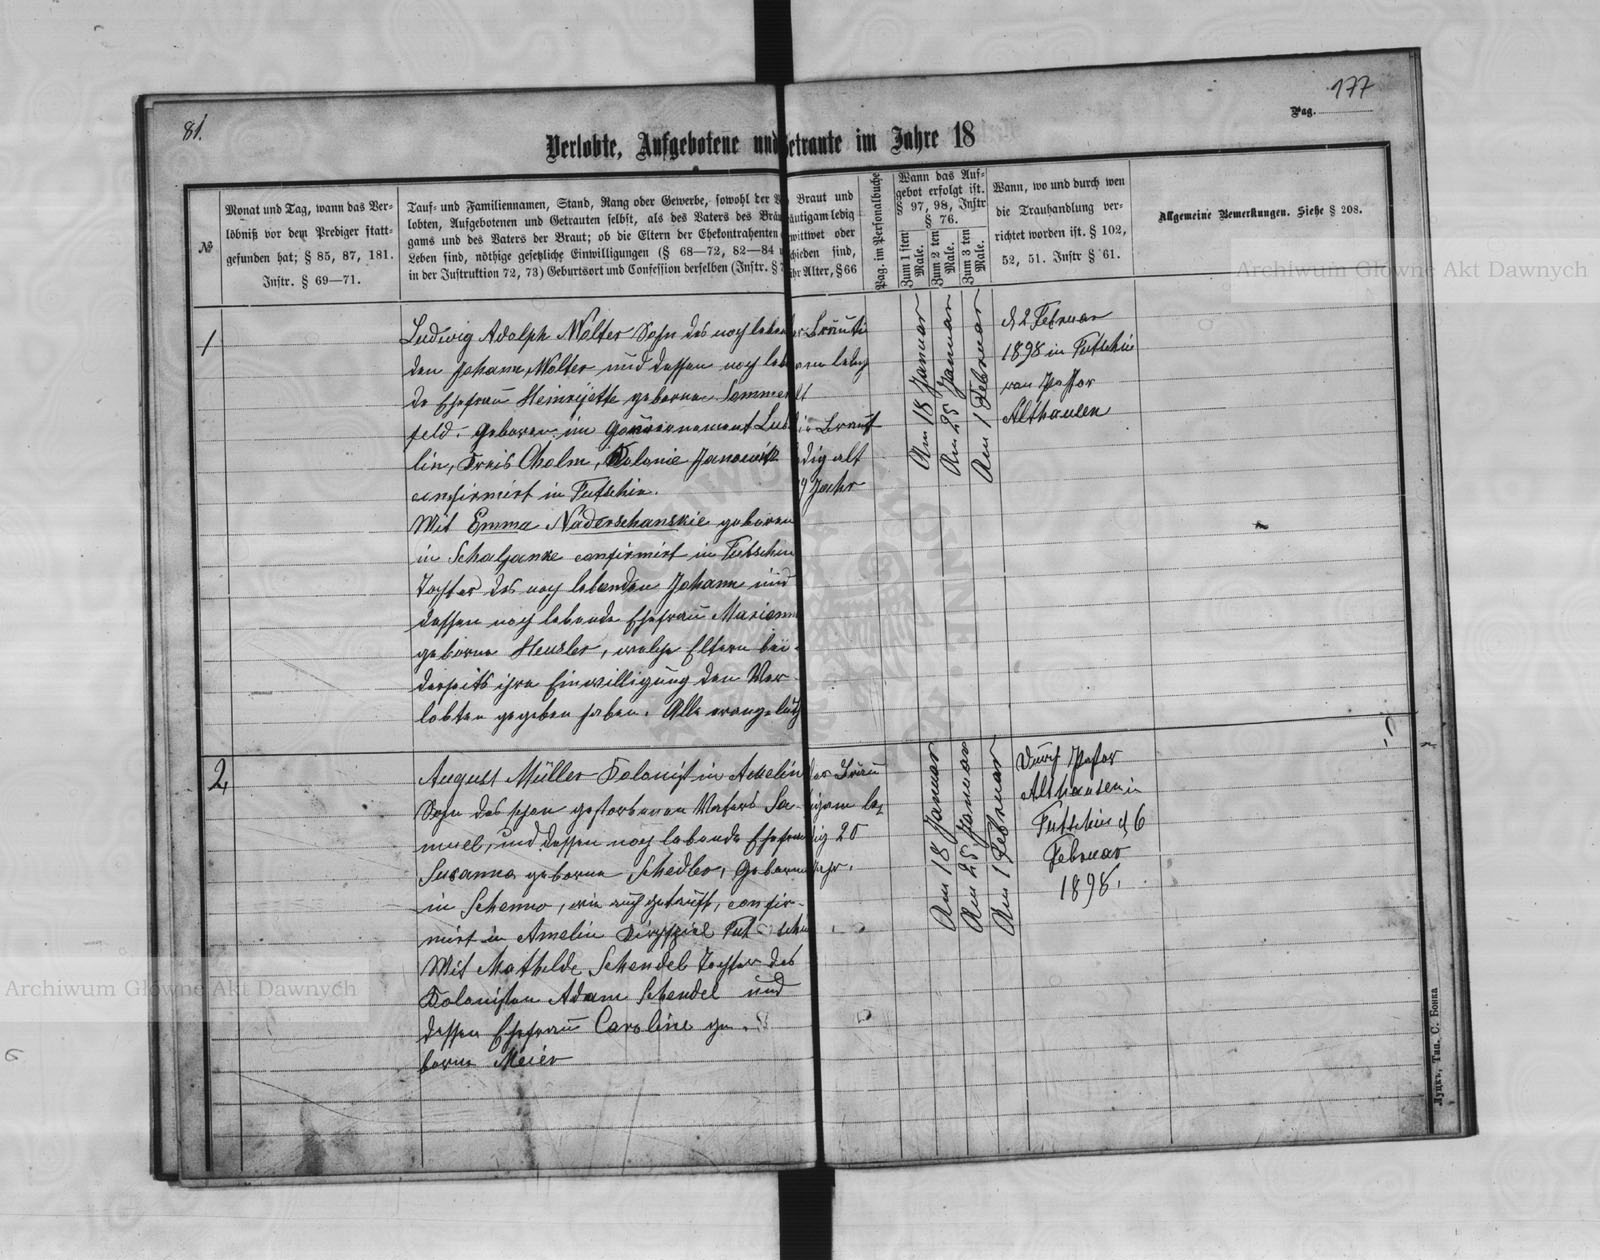 81.
177
Pag.
Verlobte, Aufgebotene und Getraute im Jahre 18
№
Monat und Tag, wann das Ver-
löbniß vor dem Prediger statt-
gefunden hat; § 85, 87, 181.
Instr. § 69—71.
Tauf- und Familiennamen, Stand, Rang oder Gewerbe, sowohl der
lobten, Aufgebotenen und Getrauten selbst, als des Vaters des
gams und des Vaters der Braut; ob die Eltern der Ehekontrahenten
Leben sind, nöthige gesetzliche Einwilligungen (§ 68—72, 82—84
in der Instruktion 72, 73) Geburtsort und Confession derselben (Instr. §
Braut und
äutigam ledig
wittwet oder
chieden sind,
ihr Alter, § 66
Pag. im Personalbuche
Wann das Auf-
gebot erfolgt ist.
§ 97, 98, Instr
§ 76.
Zum 1 sten
Male.
Zum 2 ten
Male.
Zum 3 ten
Male.
Wann, wo und durch wen
die Trauhandlung ver-
richtet worden ist. § 102,
52, 51. Instr § 61.
Allgemeine Bemerkungen. Siehe § 208.
1
Ludwig Adolph Wolter Sohn des noch leben
den Johann Wolter und dessen noch leben
de Ehefrau Heinrjette geborne Sommer
feld. Geboren im Gouvernement Lub
lin, Kreis Cholm, Kolonie Janowitz
confirmirt in Tutschin.
Mit Emma Naderschanskie geboren
in Schaljanke confirmirt in Tutschin
Tochter des noch lebenden Johann und
dessen noch lebende Ehefrau Mariann
geborne Heusler, welche Eltern bei-
derseits ihre Einwilligung den Ver-
lobten gegeben haben. Alle evang. luth
Bräuti
am ledig
Braut
dig alt
Jahr
Am 18 Januar
Am 25 Januar
Am 1 Februar
d 2 Februar
1898 in Tutschin
von Pastor
Althausen
2,
August Müller Kolonist in Amelin
Sohn des schon gestorbenen Vaters Sa-
muel, und dessen noch lebende Ehefrau
Susanna geborne Schedler, Geboren
in Schenno, wie auch getauft, confir-
mirt in Amelin Kirchspiel Tutschin
Mit Mathilde Schendel Tochter des
Kolonisten Adam Schendel und
dessen Ehefrau Caroline ge-
borne Meier
der Bräu
igam le
dig 20
Jahr.
Am 18 Januar
Am 25 Januar
Am 1 Februar
Durch Pastor
Althausen in
Tutschin d 6
Februar
1898.
Луцкъ, Тип. С. Бонка
Archiwum Główne Akt Dawnych
Archiwum Główne Akt Dawnych